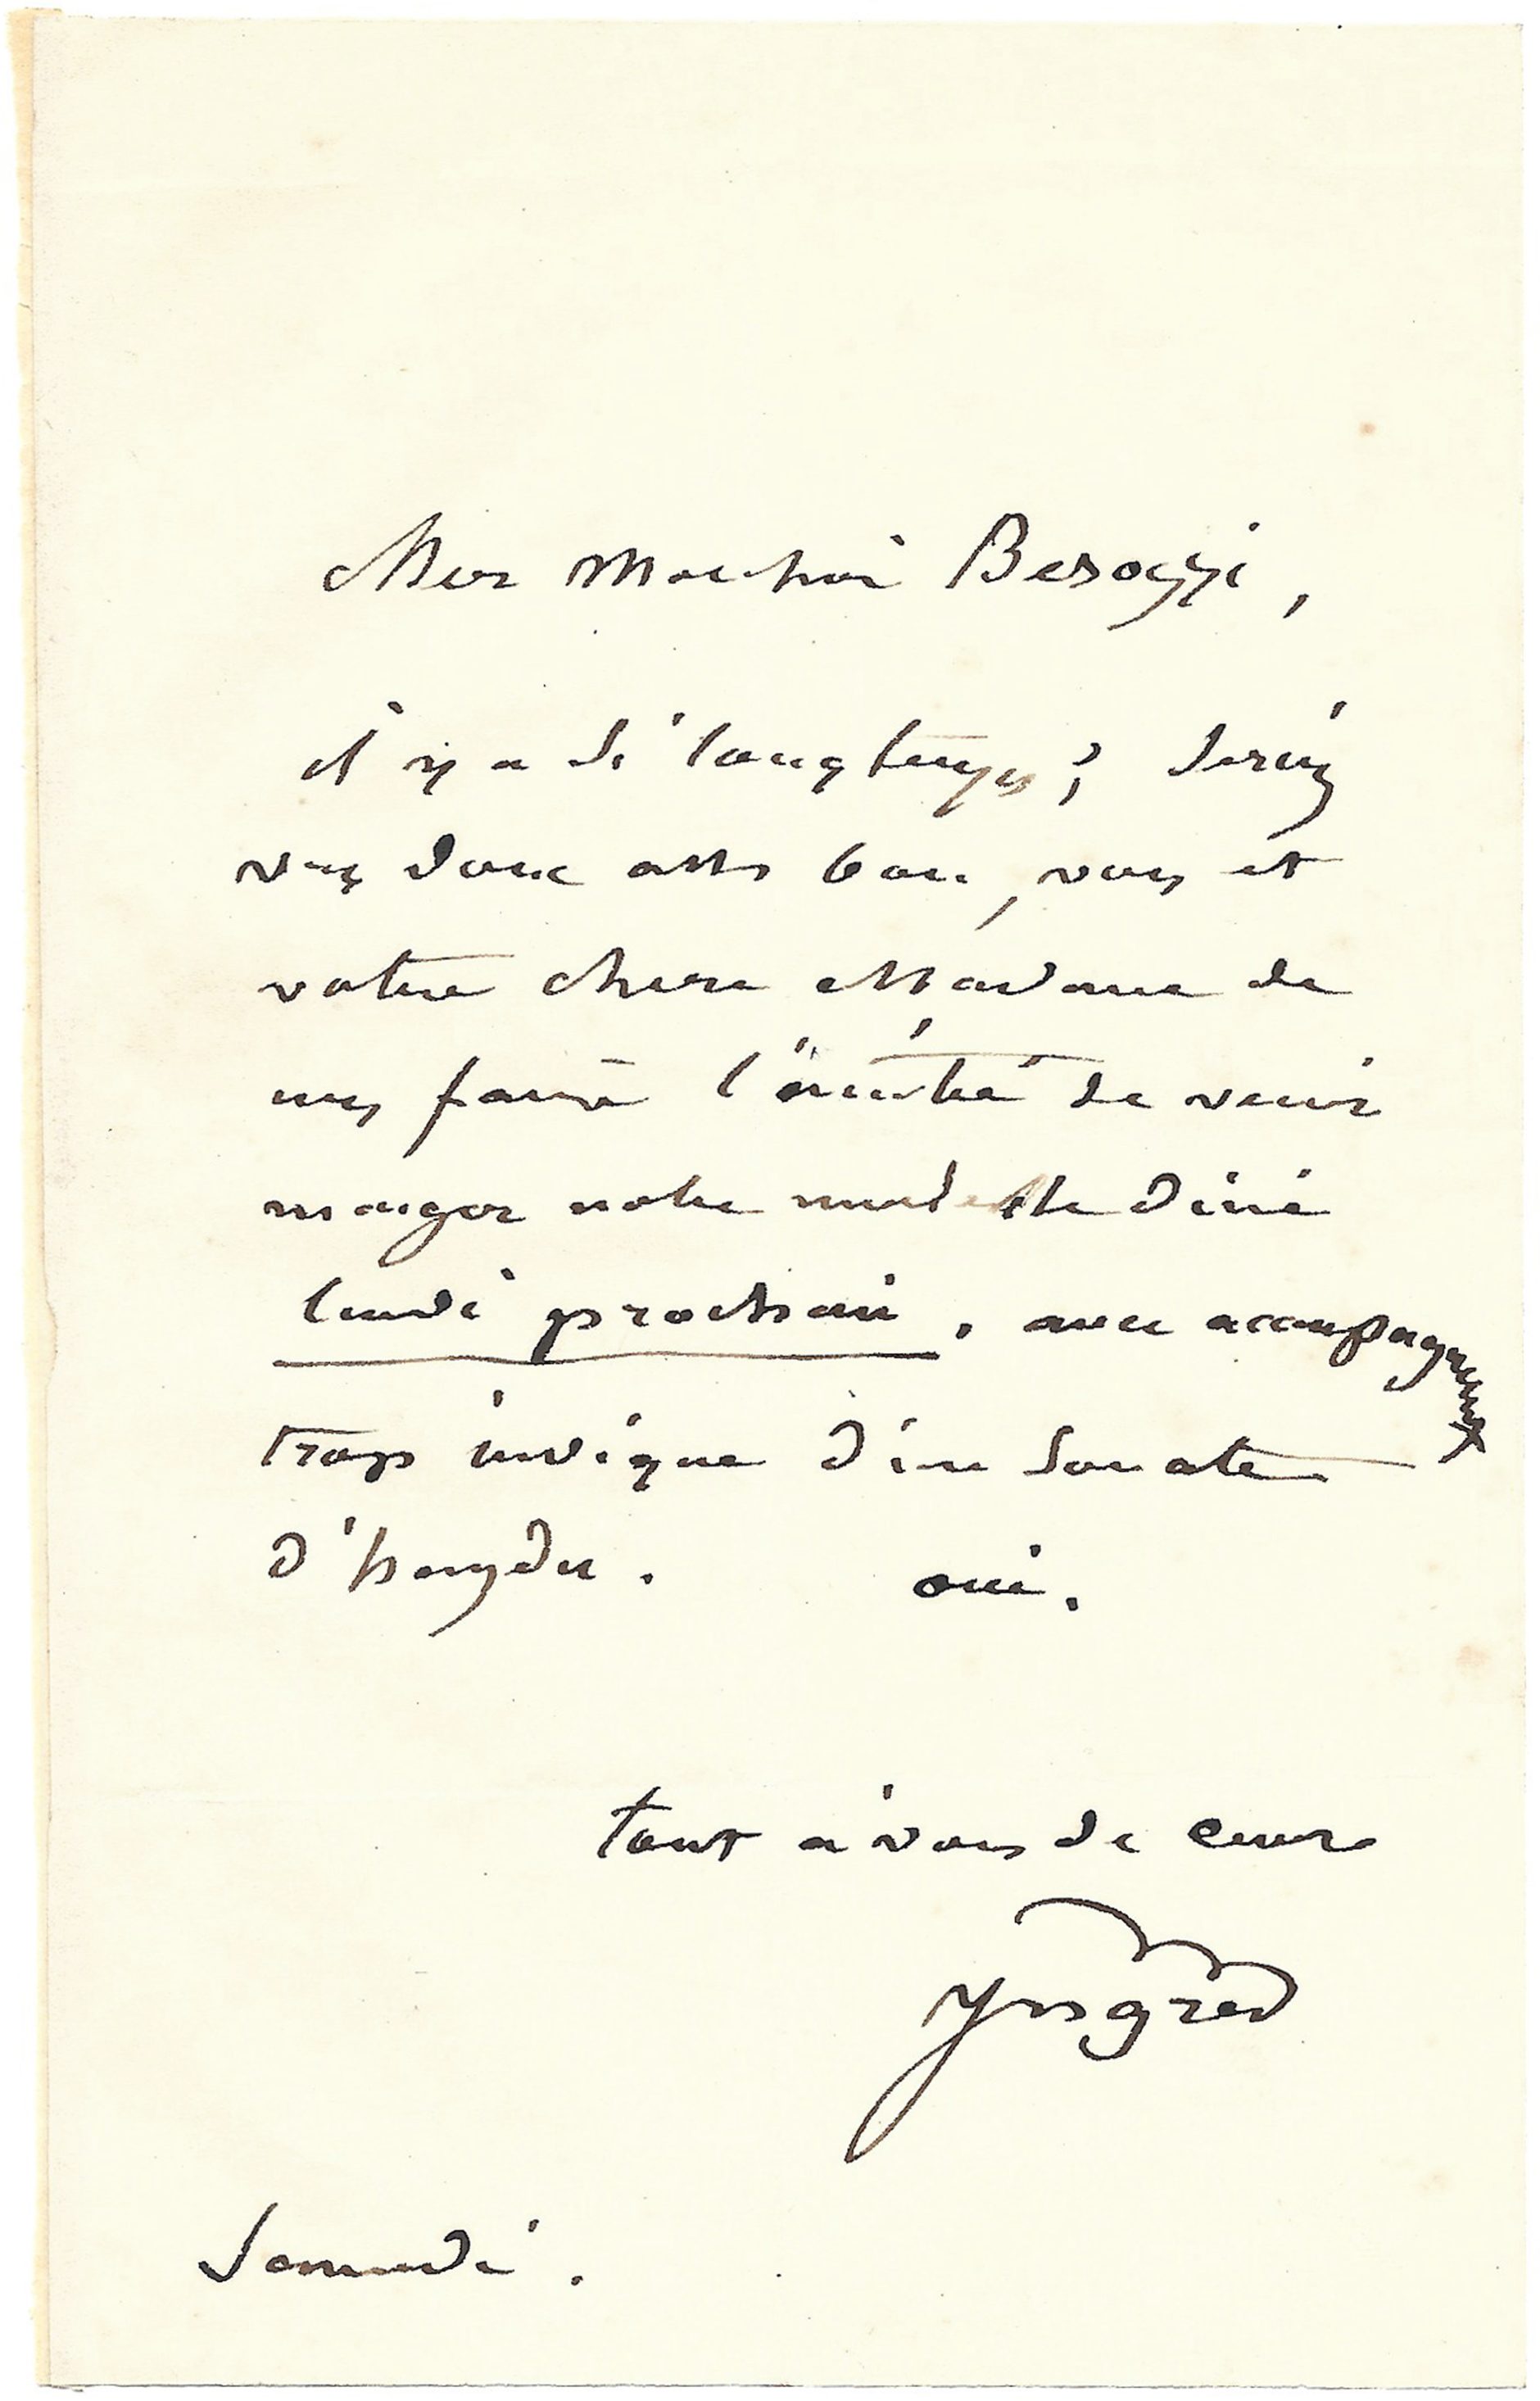 cher Monsieur Besozzi,
il y a si longtemps ; seriez
vous donc assez bon, vous et
votre chere Madame de
nous faire l'amitié de venir
manger notre modeste diné
lundi prochain, avec accompagnement
trop indigne d'une Sonate
d'haydn. oui.
tout a vous de cœur
Ingres
Samedi.